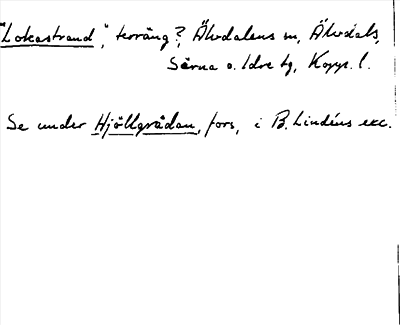 "Lokastrand", terräng?, Älvdalens sn, Älvdals,
Särna o. Idre tg, Kopp. l.
Se under Hjällgrådan, fors, i B. Lindéns exc.